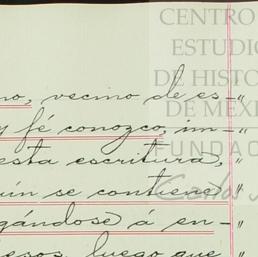 CENTRO
ESTUDIO
DE HISTO
DE MÉXI
FUNDAC
Carlos S
no, vecino de es-"
y fé conozco, im-"
esta escritura, "
ún se contiene "
gándose á en-"
esos, luego que